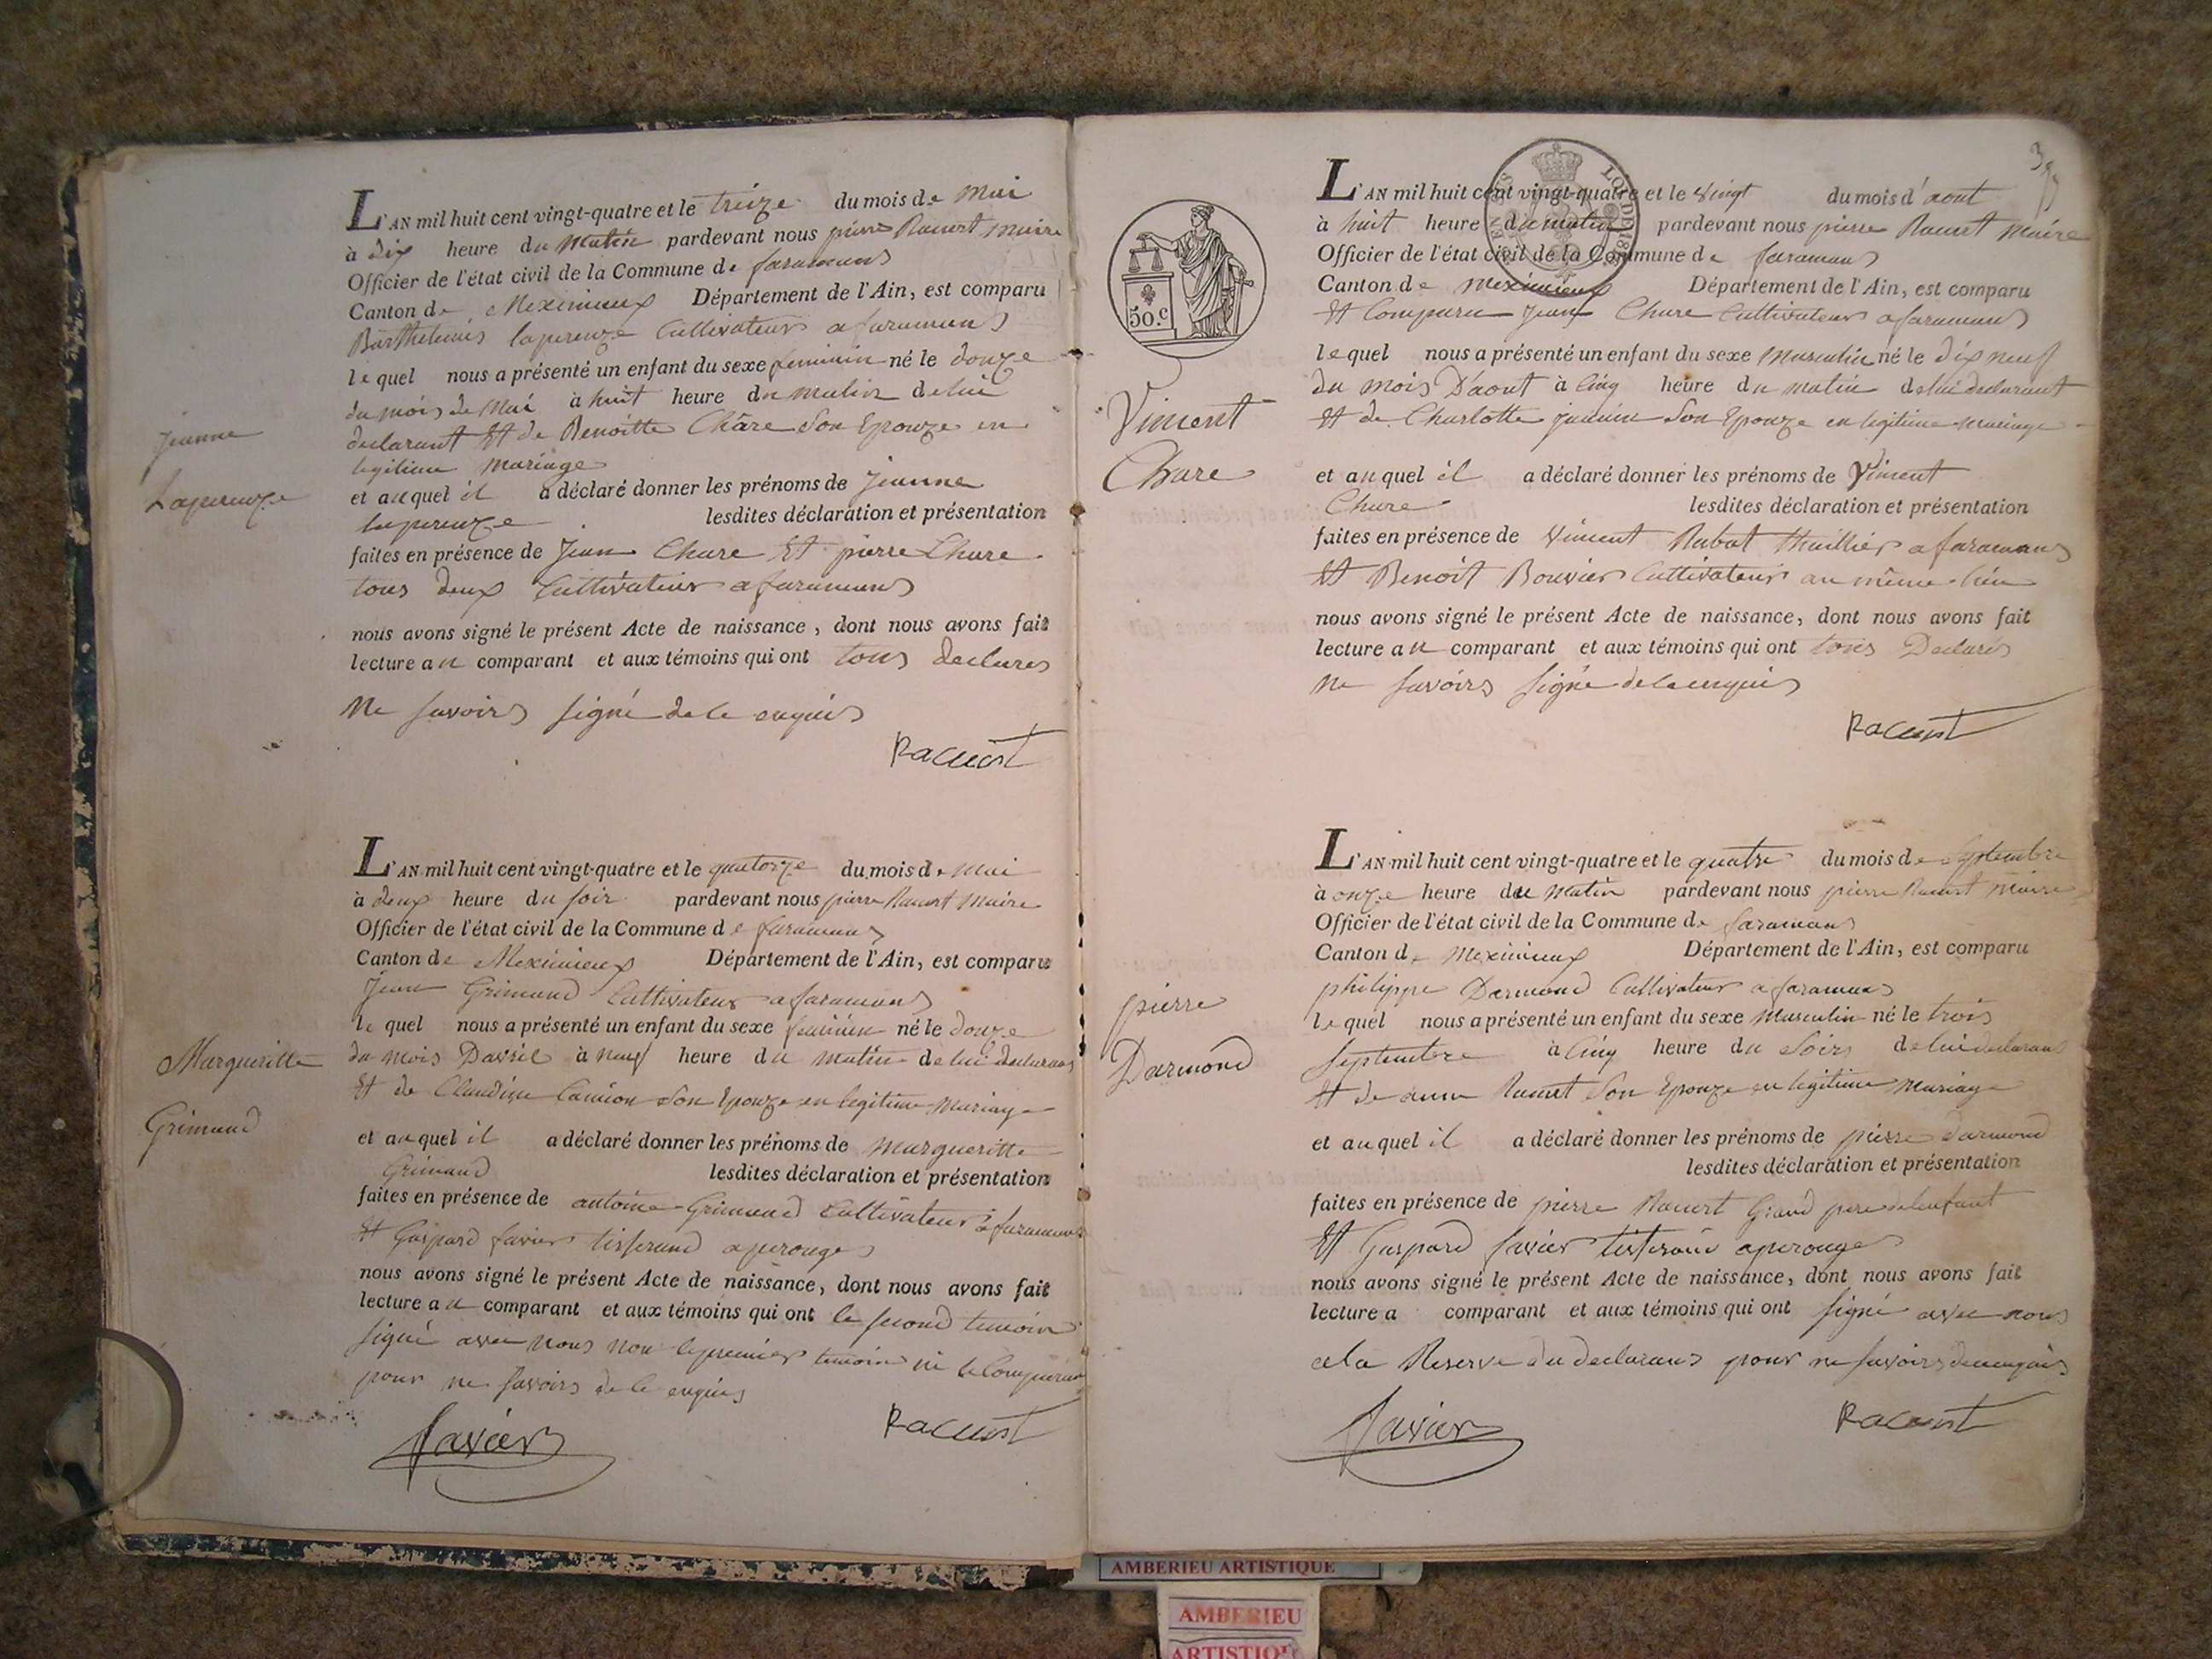 Jeanne
Lapereuze
L'AN mil huit cent vingt-quatre et le treize du mois de Mai
à dix heure du Matin pardevant nous pierre Racurt maire
Officier de l'état civil de la Commune de faramans
Canton de Meximieux Département de l'Ain, est comparu
Barthelemis lapereuze Cultivateur a faramans
le quel nous a présenté un enfant du sexe feminin né le douze
du mois de Mai à huit heure du matin de lui
declarant Et de Benoitte Chare Son Epouze en
legitime mariage
et au quel il a déclaré donner les prénoms de Jeanne
lapereuze lesdites déclaration et présentation
faites en présence de Jean Chare Et pierre Chare
tous deux Cultivateur a faramans
nous avons signé le présent Acte de naissance, dont nous avons fait
lecture au comparant et aux témoins qui ont tous declares
Ne savoirs signé de ce enquis
Racurt
Margueritte
Grimand
L'AN mil huit cent vingt-quatre et le quatorze du mois de Mai
à deux heure du soir pardevant nous pierre Racurt Maire
Officier de l'état civil de la Commune de faramans
Canton de Meximieux Département de l'Ain, est comparu
Jean Grimand Cultivateur a faramans
le quel nous a présenté un enfant du sexe feminin né le douze
du mois Davril à neuf heure du matin de lui declarans
Et de Claudine Camion Son Epouze en legitime mariage
et au quel il a déclaré donner les prénoms de Margueritte
Grimand lesdites déclaration et présentation
faites en présence de antoine Grimand Cultivateur a faramans
Et Gaspard favier tisserand a perouges
nous avons signé le présent Acte de naissance, dont nous avons fait
lecture au comparant et aux témoins qui ont le second temoin
signé avec nous non le premier temoin ni le Comparans
pour ne savoirs de ce enquis
favier Racurt
50.c
Viment
Chare
L'AN mil huit cent vingt-quatre et le vingt du mois d'aout
à huit heure du matin pardevant nous pierre Racurt Maire
Officier de l'état civil de la Commune de faramans
Canton de Meximieux Département de l'Ain, est comparu
Et Comparu Jean Chare Cultivateur a faramans
le quel nous a présenté un enfant du sexe Masculin né le dix neuf
du mois D'aout à Cinq heure du matin de lui declarant
Et de Charlotte Son Epouze en legitime mariage
et au quel il a déclaré donner les prénoms de Viment
Chare lesdites déclaration et présentation
faites en présence de Viment Rubat thaillier a faramans
Et Benoit Bouvier Cultivateur au même lieu
nous avons signé le présent Acte de naissance, dont nous avons fait
lecture au comparant et aux témoins qui ont tous Declarés
Ne savoirs signé de ce enquis
Racurt
pierre
Darmond
L'AN mil huit cent vingt-quatre et le quatre du mois de Septembre
à onze heure du Matin pardevant nous pierre Racurt Maire
Officier de l'état civil de la Commune de faramans
Canton de Meximieux Département de l'Ain, est comparu
philippe Darmond Cultivateur a faramans
le quel nous a présenté un enfant du sexe Masculin né le trois
Septembre à Cinq heure du Soirs de lui declarant
Et de anne Racurt Son Epouze en legitime mariage
et au quel il a déclaré donner les prénoms de pierre darmond
lesdites déclaration et présentation
faites en présence de pierre Racurt Grand pere de lenfant
Et Gaspard favier tisserand a perouges
nous avons signé le présent Acte de naissance, dont nous avons fait
lecture a comparant et aux témoins qui ont signé avec nous
a la Reserve du declarans pour ne savoirs de ce enquis
favier Racurt
AMBERIEU ARTISTIQUE
AMBERIEU
ARTISTIQUE